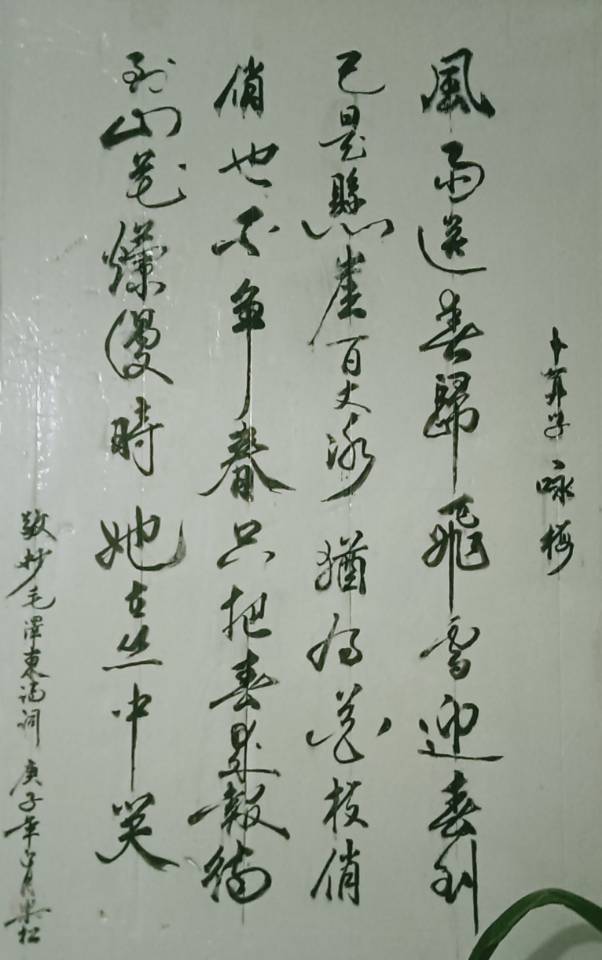 卜算子 咏梅
風雨送春歸飛雪迎春到
已是懸崖百丈冰猶有花枝俏
俏也不争春只把春来報待
到山花爛漫時她在丛中笑
敬抄毛澤東詩詞 庚子年月松